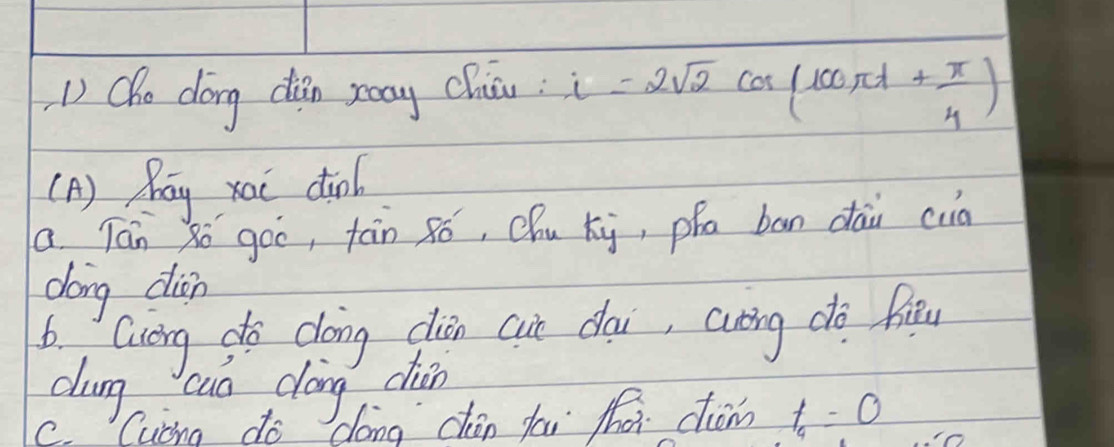 1) Cho dòng điện xoay chiều : i = 2√2 cos (100πt + π/4)
(A) Hãy xác định
a. Tần số góc, tần số, chu kỳ, pha ban đầu của
dòng điện
b. Cường độ dòng điện cực đại, cường độ hiệu
dụng của dòng điện
c. Cường độ dòng điện tại thời điểm t = 0